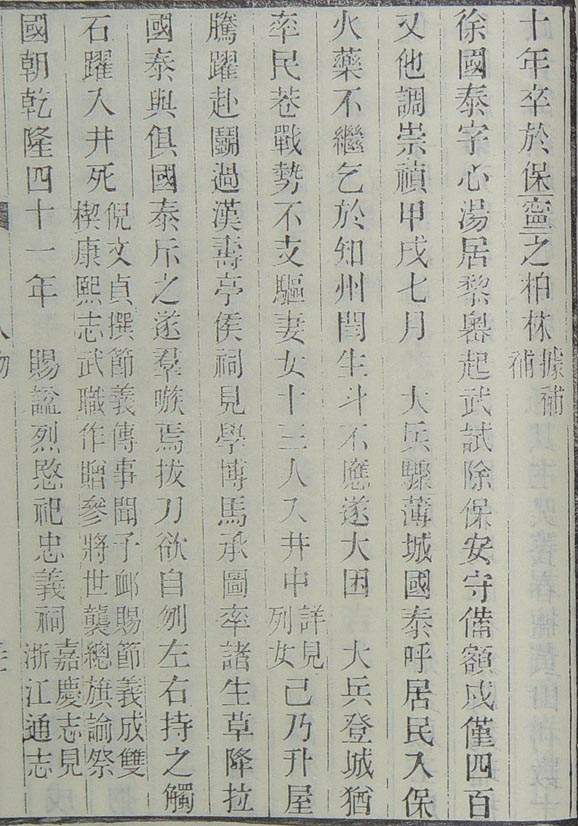 十年卒於保寧之柏林據補補
徐國泰字心湯居黎里起武試除保安守備額戍僅四百
又他調崇禎甲戌七月　大兵驟薄城國泰呼居民入保
火藥不繼乞於知州閻生斗不應遂大困　大兵登城猶
率民巷戰勢不支驅妻女十三人入井中詳見列女己乃升屋
騰躍赴鬭過漢壽亭侯祠見學博馬承圖率諸生草降拉
國泰與俱國泰斥之遂羣嗾焉拔刀欲自刎左右持之觸
石躍入井死倪文貞撰節義傳事聞予邮賜節義成雙楔康熙志武職作贈參將世襲總旗諭祭
國朝乾隆四十一年　賜諡烈愍祀忠義祠嘉慶志見浙江通志
人物